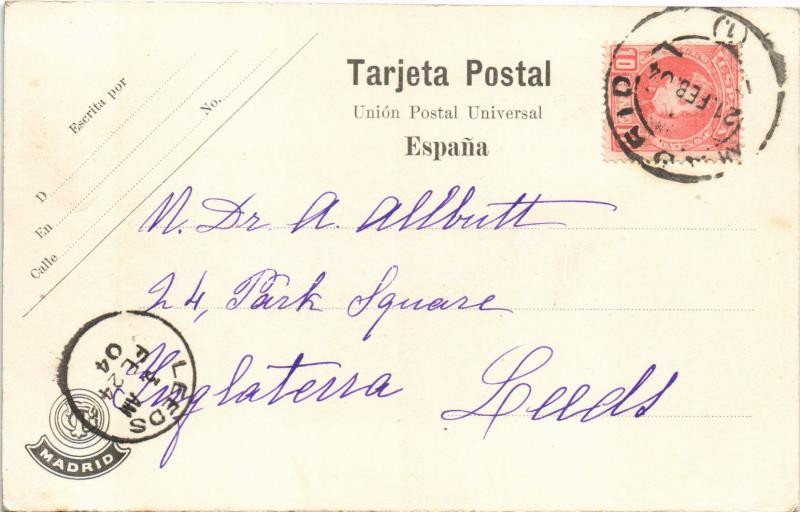 Tarjeta Postal
Unión Postal Universal
España
Escrita por
D No.
En
Calle
10
MADRID
21 FEB 04
(1.)
N. Dr A. Allbutt
24, Park Square
Inglaterra Leeds
LEEDS
AM
FE 24
04
MADRID